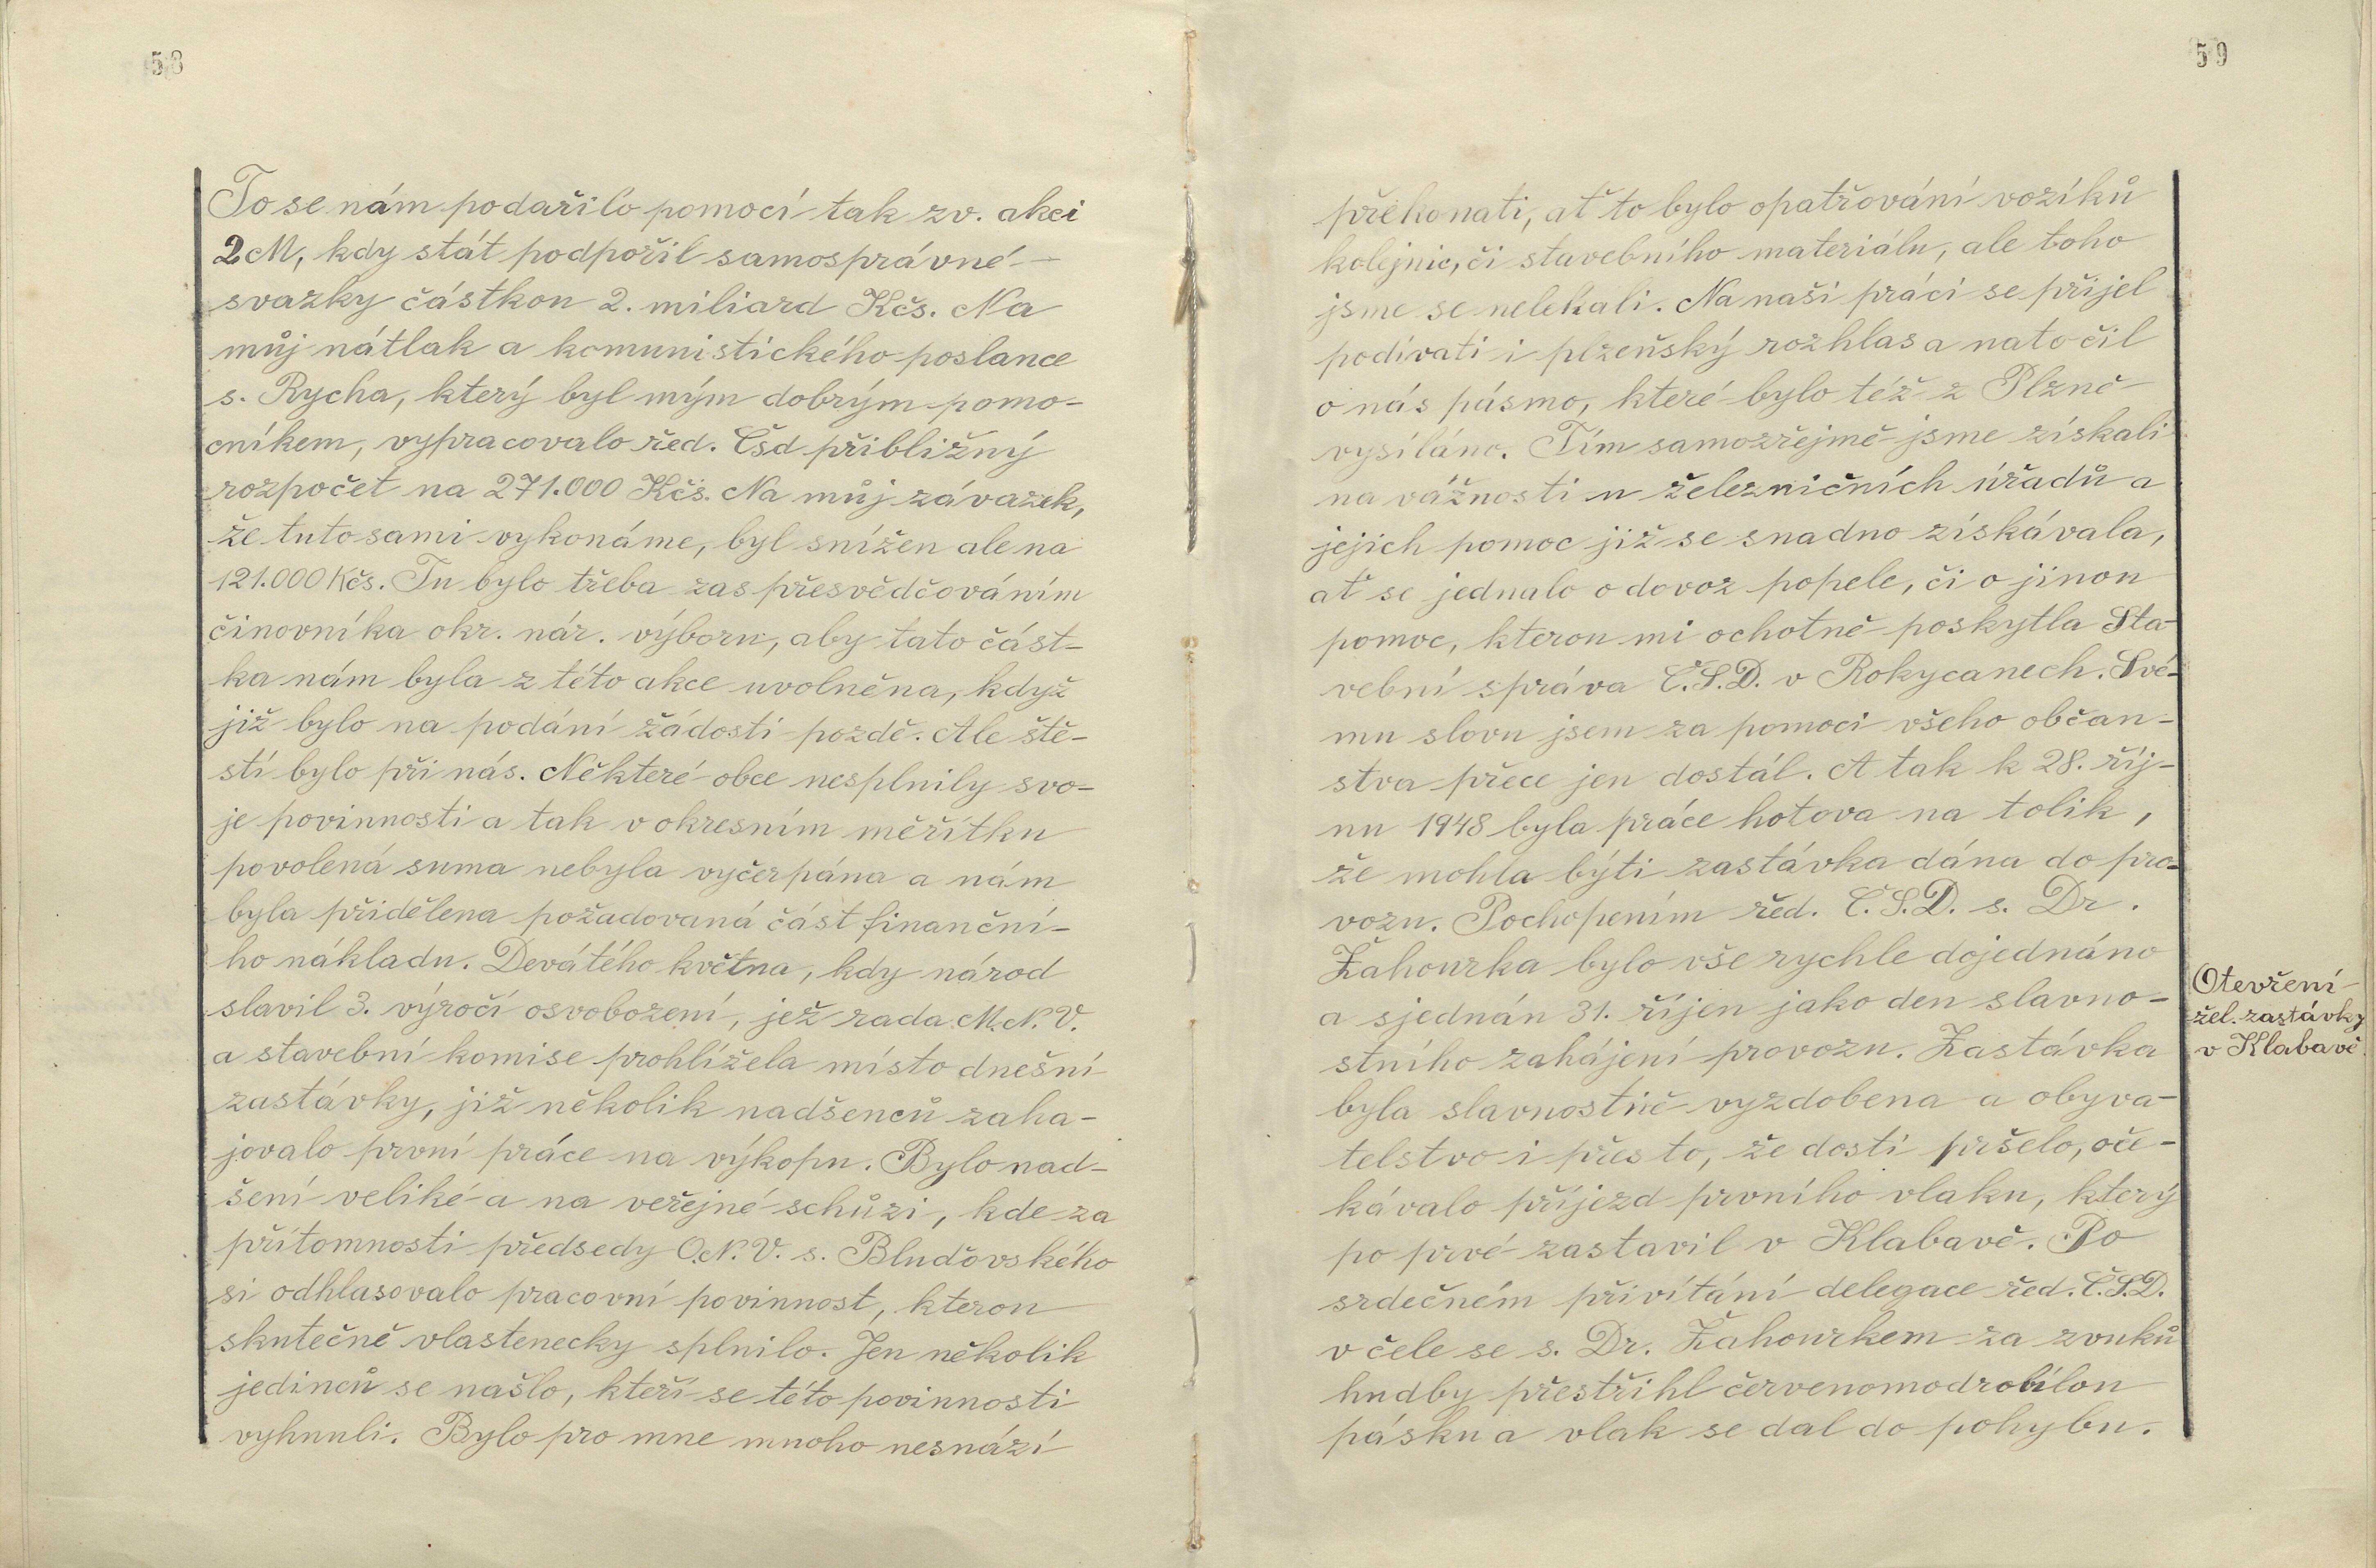 58
To se nám podařilo pomocí tak zv. akci
2M, kdy stát podpořil samosprávné
svazky částkou 2. miliard Kčs. Na
můj nátlak a komunistického poslance
s. Rycha, který byl mým dobrým pomo-
cníkem, vypracovalo řed. Čsd přibližný
rozpočet na 271.000 Kčs. Na můj závazek,
že tuto sami vykonáme, byl snížen ale na
121.000 Kčs. Tu bylo třeba zas přesvědčováním
činovníka okr. nár. výboru, aby tato část-
ka nám byla z této akce uvolněna, když
již bylo na podání žádosti pozdě. Ale ště-
stí bylo při nás. Některé obce nesplnily svo-
je povinnosti a tak v okresním měřítku
povolená suma nebyla vyčerpána a nám
byla přidělena požadovaná část finanční-
ho nákladu. Devátého května, kdy národ
slavil 3. výročí osvobození, jež rada M.N.V.
a stavební komise prohlížela místo dnešní
zastávky, již několik nadšenců zaha-
jovalo první práce na výkopu. Bylo nad-
šení veliké a na veřejné schůzi, kde za
přítomnosti předsedy O.N.V. s. Bludovského
si odhlasovalo pracovní povinnost, kterou
skutečně vlastenecky splnilo. Jen několik
jedinců se našlo, kteří se této povinnosti
vyhnuli. Bylo pro mne mnoho nesnází
59
překonati, ať to bylo opatřování vozíků
kolejnic, či stavebního materiálu, ale toho
jsme se nelekali. Na naši práci se přijel
podívati i plzeňský rozhlas a natočil
o nás pásmo, které bylo též z Plzně
vysíláno. Tím samozřejmě jsme získali
na vážnosti u železničních úřadů a
jejich pomoc již se snadno získávala,
ať se jednalo o dovoz popele, či o jinou
pomoc, kterou mi ochotně poskytla Sta-
vební správa Č.S.D. v Rokycanech. Své-
mu slovu jsem za pomoci všeho občan-
stva přece jen dostál. A tak k 28. říj-
nu 1948 byla práce hotova na tolik,
že mohla býti zastávka dána do pro-
vozu. Pochopením řed. Č.S.D. s. Dr.
Žahourka bylo vše rychle dojednáno
a sjednán 31. říjen jako den slavno-
stního zahájení provozu. Zastávka
byla slavnostně vyzdobena a obyva-
telstvo i přes to, že dosti pršelo, oče-
kávalo příjezd prvního vlaku, který
po prvé zastavil v Klabavě. Po
srdečném přivítání delegace řed. Č.S.D.
v čele se s. Dr. Žahourkem za zvuků
hudby přestřihl červenomodrobílou
pásku a vlak se dal do pohybu.
Otevření
žel. zastávky
v Klabavě.